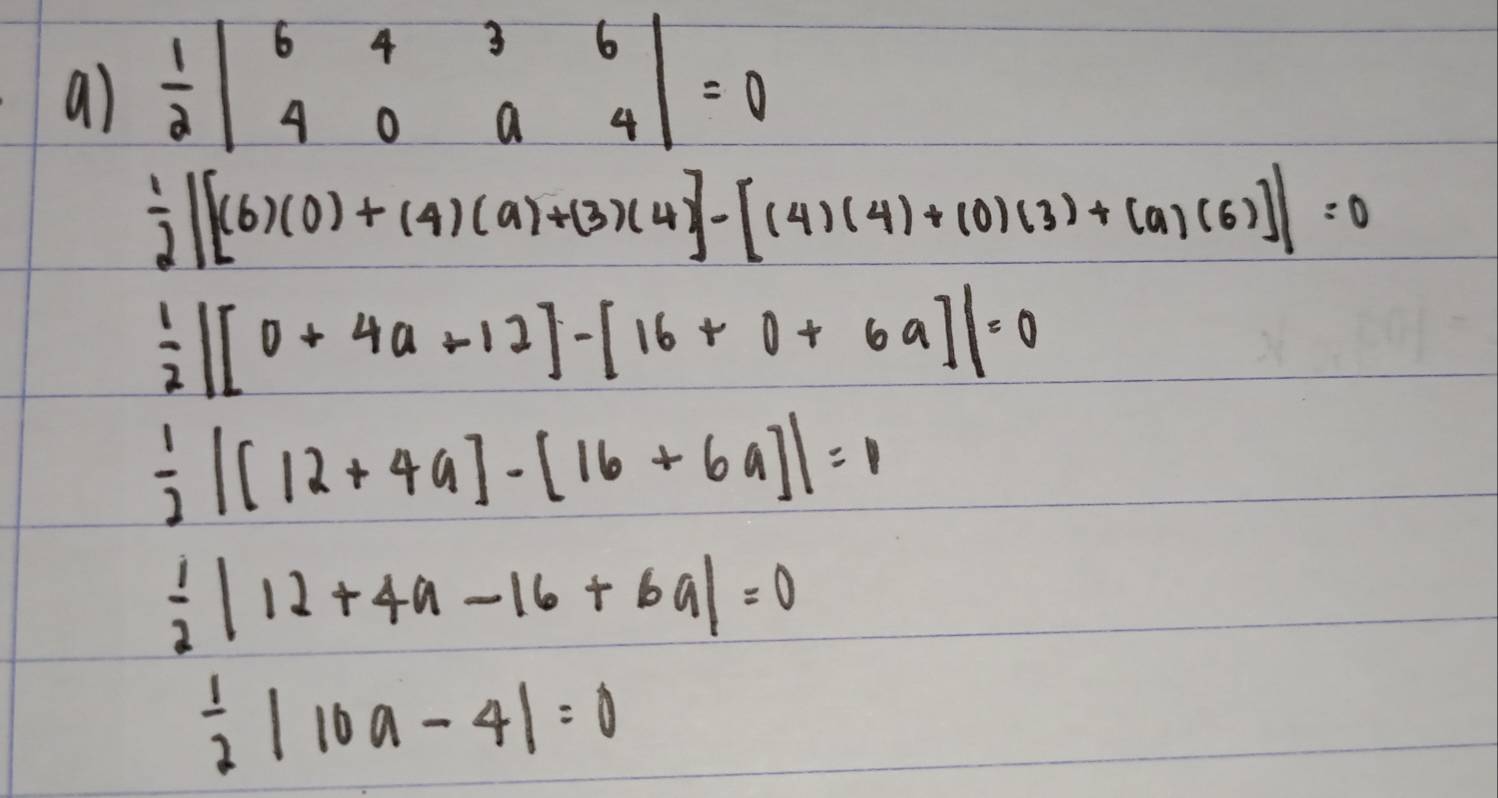 a) 1/2 | 6 4 3 6 | = 0
4 0 a 4
1/2 |[(6)(0) + (4)(a)+(3)(4)] - [(4)(4) + (0)(3) + (a)(6)]| = 0
1/2 |[0 + 4a + 12] - [16 + 0 + 6a]| = 0
1/2 |[12 + 4a] - [16 + 6a]| = 0
1/2 | 12 + 4a - 16 + 6a| = 0
1/2 | 10a - 4| = 0